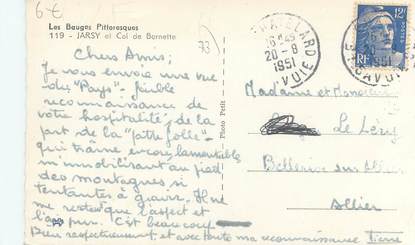 6€
Les Bauges Pittoresques
119 - JARSY et Col de Bornette
73
CHATELARD
16H45
20-8
1951
SAVOIE
12F
RF
Chers Amis,
Je vous envoie une vue
du "Pays" - faible
reconnaissance de
votre hospitalité, de la
part de la "patte folle" -
qui traîne encore lamentablement
m'immobilisant au pied
des montagnes si
tentantes à gravir. Il ne
me reste que l'aspect et
l'air pur. C'est beaucoup
Bien respectueusement et avec toute ma reconnaissance Pierre
Photo Petit
Madame et Monsieur
Le Léry
Bellerive sur Allier
Allier